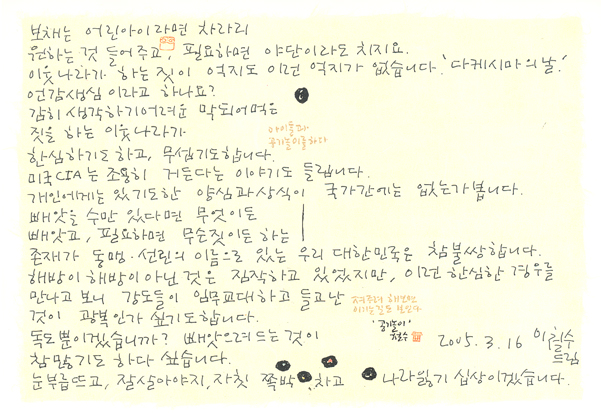 보채는 어린아이라면 차라리
원하는 것 들어주고, 필요하면 야단이라도 치지요.
이웃나라가 하는 짓이 억지도 이런 억지가 없습니다. '다케시마의 날'
언감생심 이라고 하나요?
감히 생각하기 어려운 막되어먹은
짓을 하는 이웃나라가
아이들과
공기놀이를 하다
한심하기도 하고, 무섭기도 합니다.
미국 CIA는 조용히 거든다는 이야기도 들립니다.
개인에게는 있기도 한 양심과 상식이 국가간에는 없는가 봅니다.
빼앗을 수만 있다면 무엇이든
빼앗고, 필요하면 무슨 짓이든 하는
존재가 동맹·선린의 이름으로 있는 우리 대한민국은 참 불쌍합니다.
해방이 해방이 아닌 것은 짐작하고 있었지만, 이런 한심한 경우를
만나고 보니 강도들이 임무교대하고 들고 난
것이 광복인가 싶기도 합니다.
'공기놀이'
철수
2005. 3. 16 이철수
드림
독도뿐이겠습니까? 빼앗으려 드는 것이
참 많기도 하다 싶습니다.
눈 부릅뜨고, 잘 살아야지, 자칫 쪽박 차고 나라 잃기 십상이겠습니다.